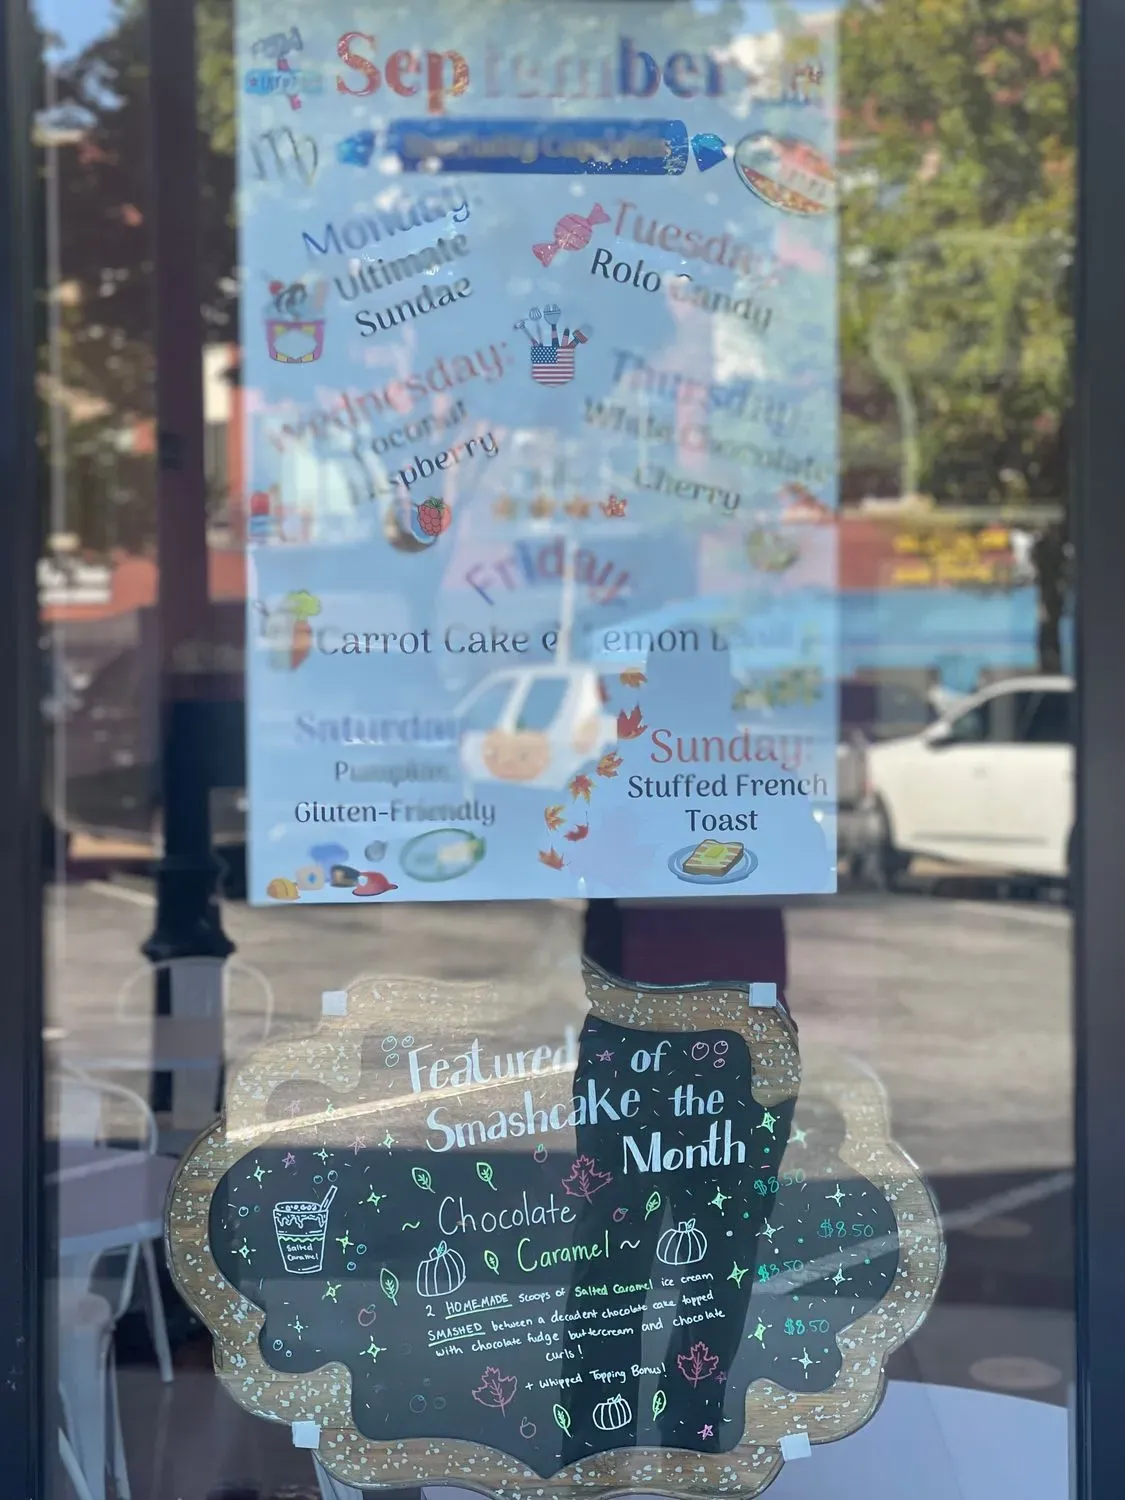 September
Specialty Cupcakes
Monday:
Ultimate
Sundae
Tuesday:
Rolo Candy
Wednesday:
Coconut
Raspberry
Thursday:
White Chocolate
Cherry
Friday:
Carrot Cake & Lemon
Saturday
Pumpkin
Gluten-Friendly
Sunday:
Stuffed French
Toast
Featured of
Smashcake the
Month
~ Chocolate
Caramel ~
Salted
Caramel
$8.50
$8.50
$8.50
$8.50
2 HOMEMADE scoops of Salted Caramel ice cream
SMASHED between a decadent chocolate cake topped
with chocolate fudge buttercream and chocolate
curls!
+ Whipped Topping Bonus!